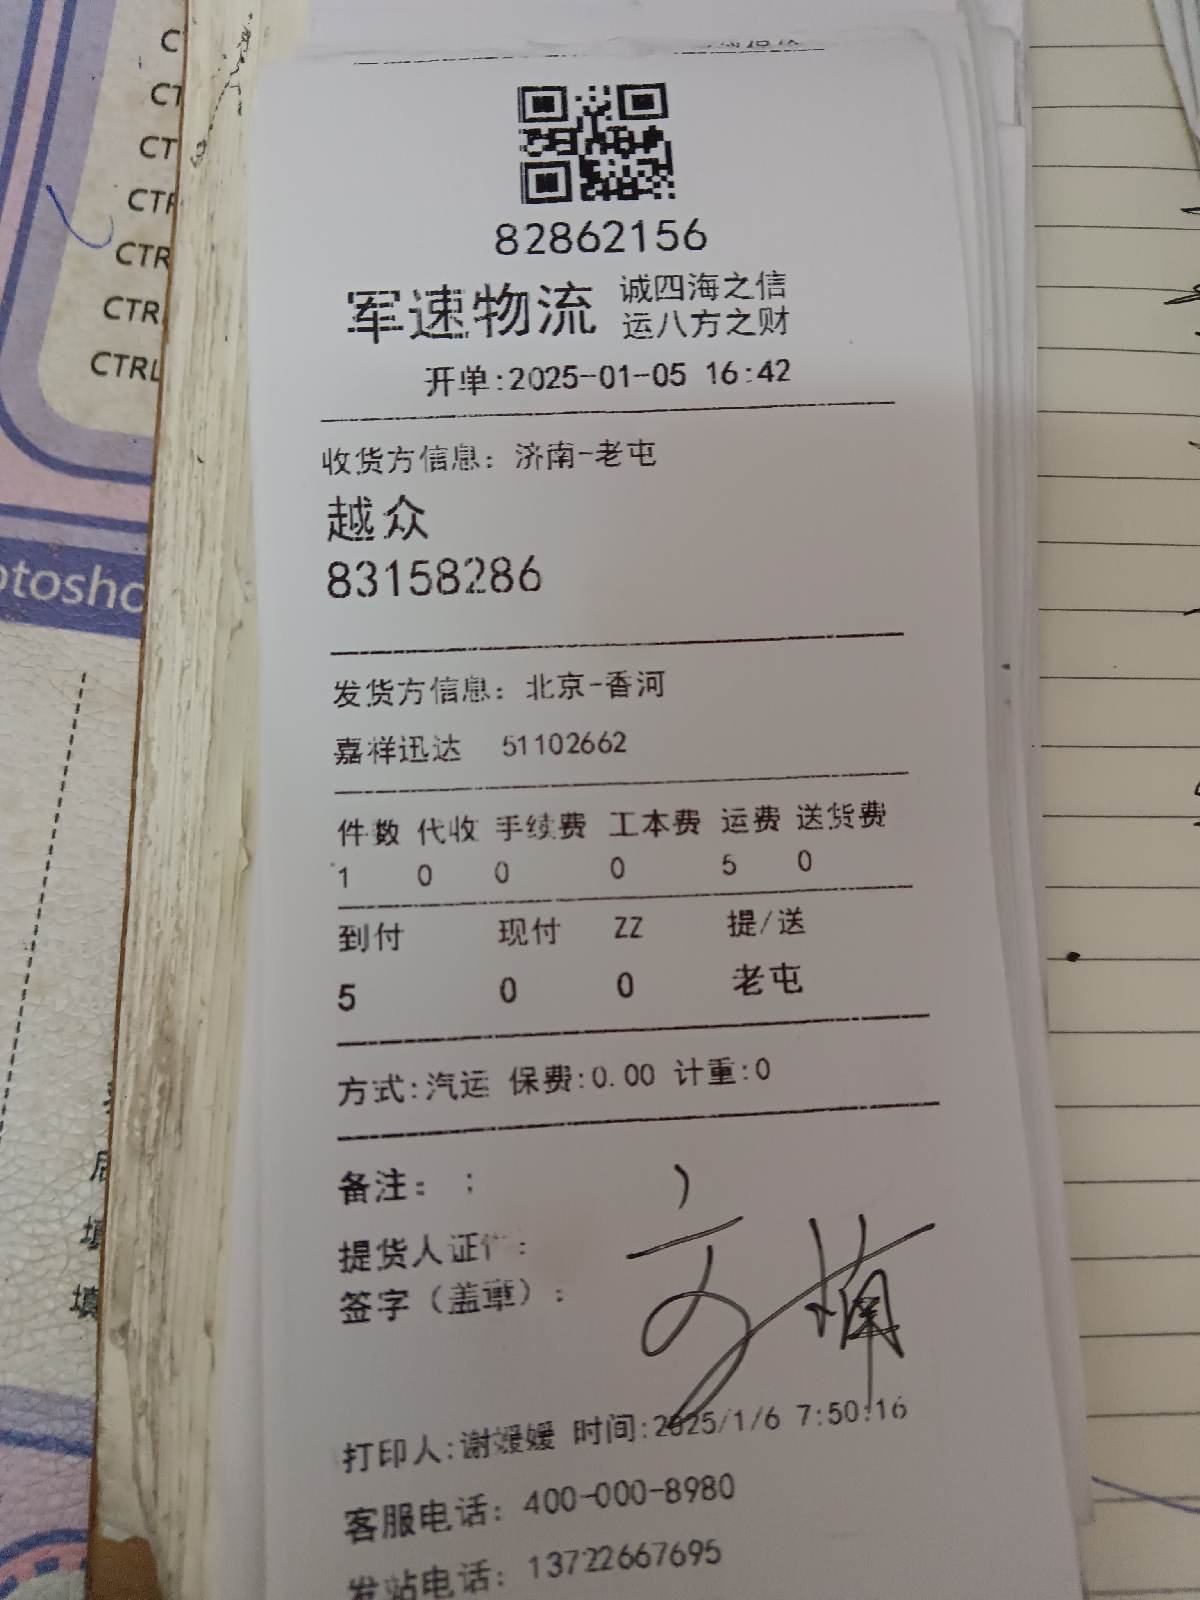 82862156
军速物流 诚四海之信
运八方之财
开单:2025-01-05 16:42
收货方信息: 济南-老屯
越众
83158286
发货方信息: 北京-香河
嘉祥迅达 51102662
件数 代收 手续费 工本费 运费 送货费
1 0 0 0 5 0
到付 现付 ZZ 提/送
5 0 0 老屯
方式:汽运 保费:0.00 计重:0
备注: ;
提货人证件:
签字（盖章）:
打印人:谢媛媛 时间:2025/1/6 7:50:16
客服电话: 400-000-8980
发站电话: 13722667695
CTR
CTR
CTRL